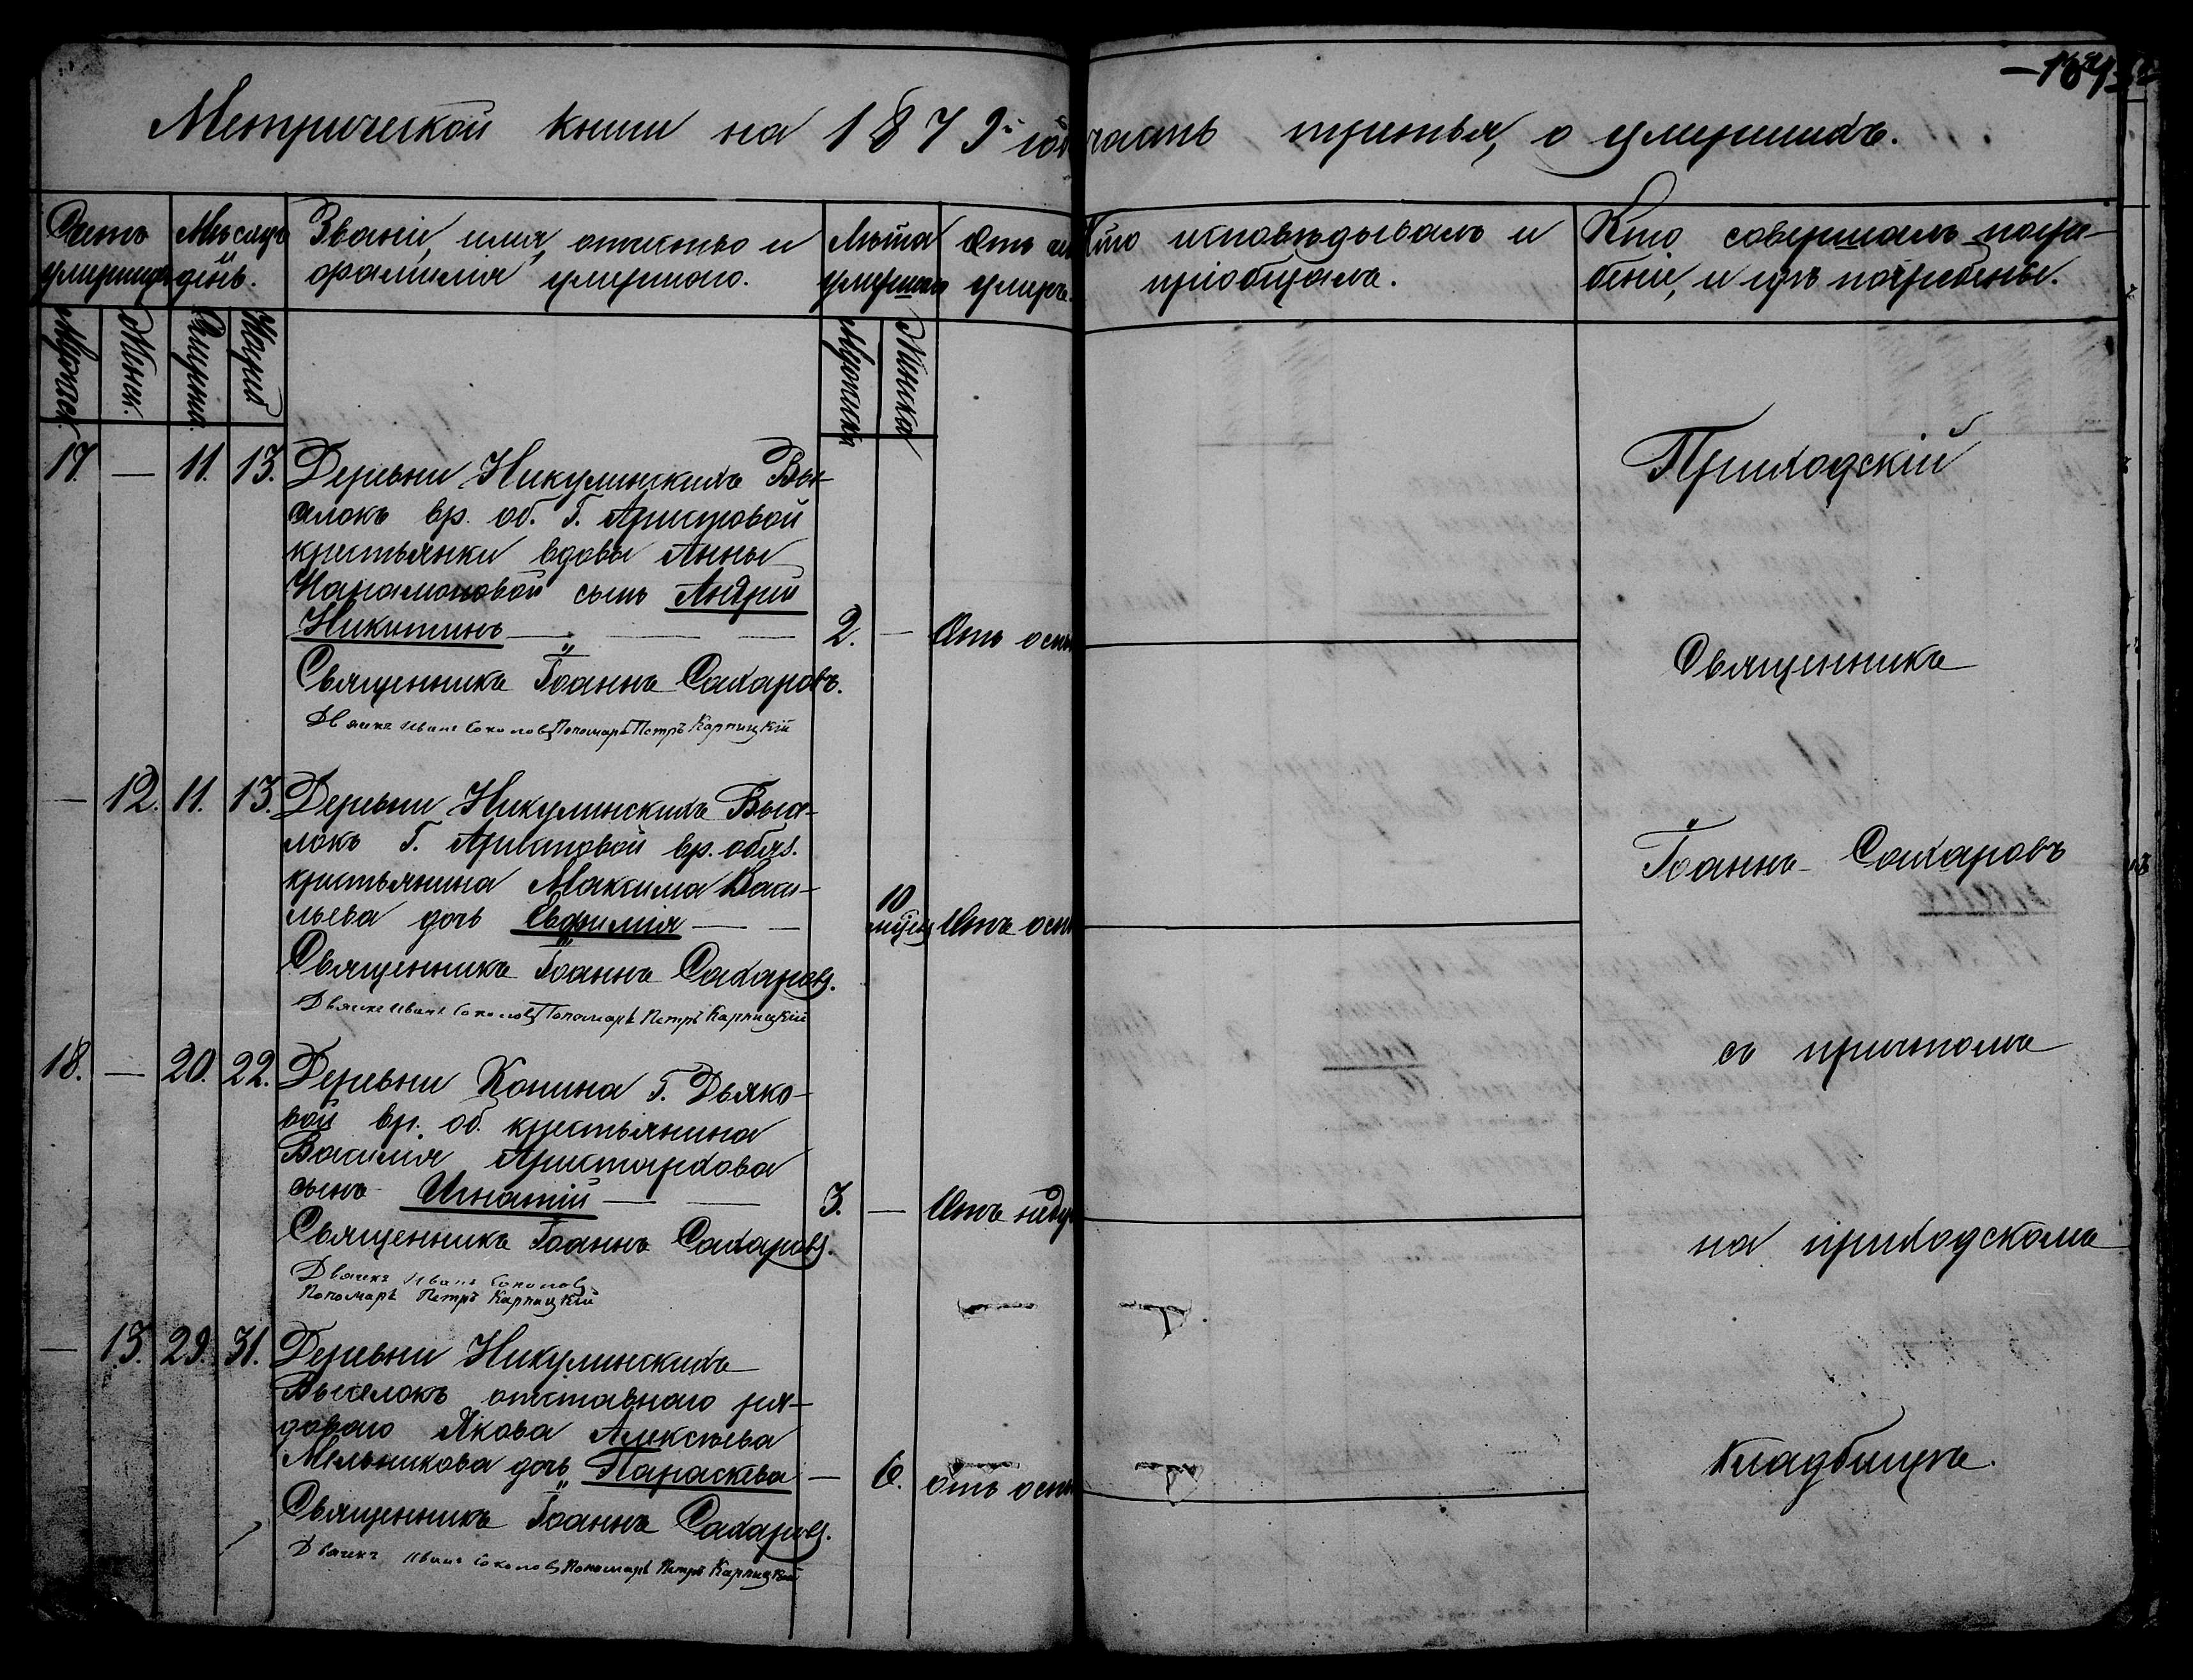 Метрической книги на 1879й год часть третья, о умершихъ.
Счетъ умершихъ
Мѣсяцъ и день.
Званіе, имя, отчество и фамилія умершаго.
Лѣта умершаго
Отъ чего умеръ.
Кто исповѣдывалъ и пріобщалъ.
Кто совершалъ погре-
беніе, и гдѣ погребены.
Мужеск.
Женск.
Смерти
Мужска
Женска
17. — 11. 13. Деревни Никулинскихъ Вы-
селокъ вр. об. Г. Аристовой
крестьянки вдовы Анны
сынъ Андрей
Никитинъ — 2. — Отъ осп
Священникъ Іоаннъ Сахаровъ.
Дьячекъ Иванъ Соколовъ Пономарь Петръ Карпицкій
— 12. 11. 13. Деревни Никулинскихъ Высе-
локъ Г. Аристовой вр. обяз.
крестьянина Максима Васи-
льева дочь Евфимія — 10 Отъ осп
Священникъ Іоаннъ Сахаровъ.
Дьячекъ Иванъ Соколовъ Пономарь Петръ Карпицкій
18. — 20. 22. Деревни Конина Г. Дьяко-
вой вр. об. крестьянина
Василія Аристархова
сынъ Игнатій — 3. — Отъ
Священникъ Іоаннъ Сахаровъ.
Дьячекъ Иванъ Соколовъ
Пономарь Петръ Карпицкій
— 13. 29. 31. Деревни Никулинскихъ
Выселокъ отставнаго ря-
доваго Якова Алексѣева
Мельникова дочь Параскева — 6. отъ осп
Священникъ Іоаннъ Сахаровъ.
Дьячекъ Иванъ Соколовъ Пономарь Петръ Карпицкій
Приходскій
Священникъ
Іоаннъ Сахаровъ
съ причтомъ
на приходскомъ
кладбищѣ.